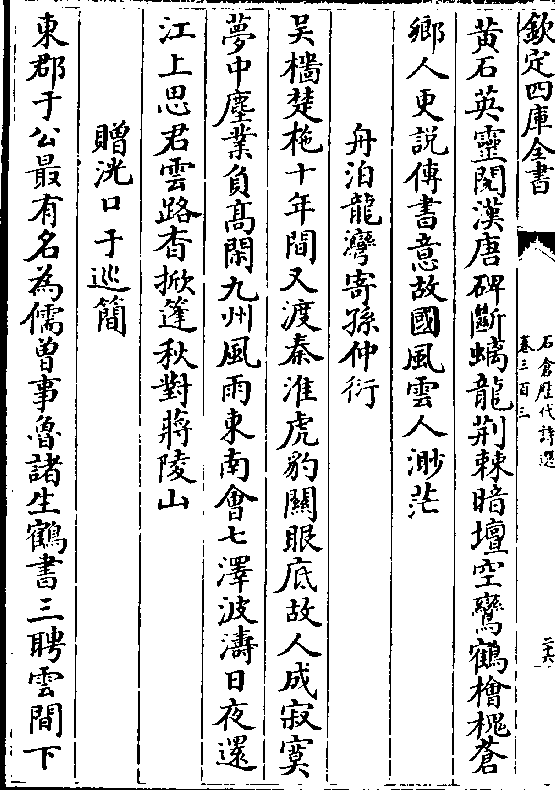 欽定四庫全書
石倉歷代詩選
卷三百三
二十六
黃石英靈閱漢唐碑斷螭龍荆棘暗壇空鸞鶴檜槐蒼
鄉人更説傳書意故國風雲人渺茫
舟泊龍灣寄孫仲衍
吴檣楚柂十年間又渡秦淮虎豹關眼底故人成寂寞
夢中塵業負髙閒九州風雨東南會七澤波濤日夜還
江上思君雲路杳掀篷秋對蔣陵山
贈洸口于巡簡
東郡于公最有名為儒曽事魯諸生鶴書三聘雲間下